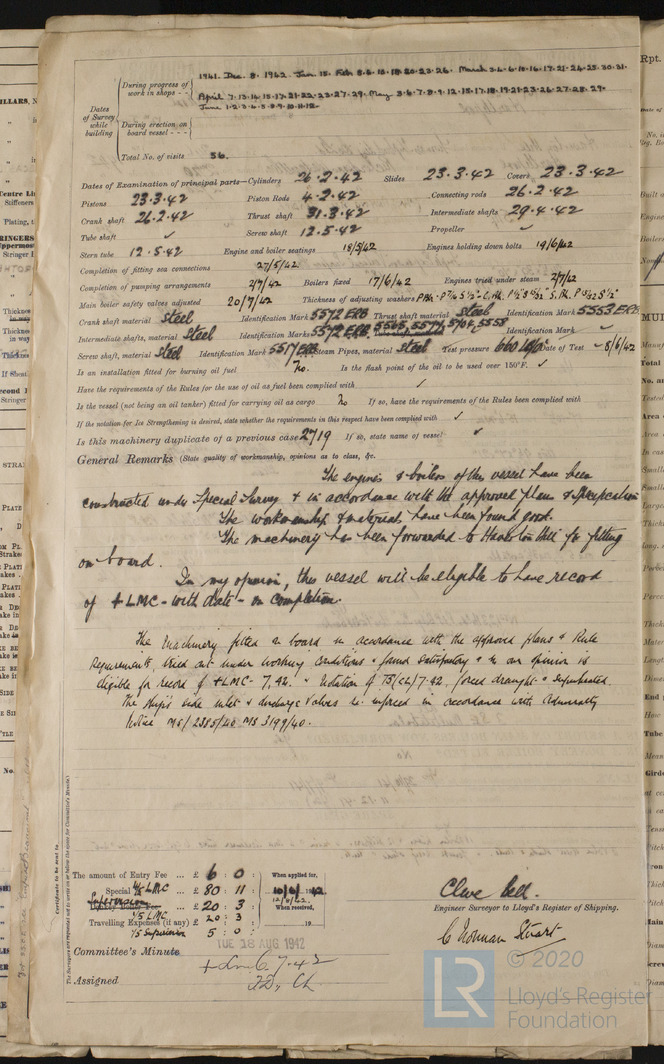 1941. Dec 8. 1942 Jan 15. Feb 5.6.13.18.20.23.26. March 3.4.6.10.16.17.21.24.25.30.31.
During progress of work in shops - -
April 7.13.14.15.17.21.22.23.27.29. May 3.6.7.8.9.12.15.17.18.19.21.23.26.27.28.29.
June 1.2.3.4.5.8.9.10.11.12.
Dates of Survey while building
During erection on board vessel - - -
Total No. of visits 56.
Dates of Examination of principal parts—Cylinders 26.2.42 Slides 23.3.42 Covers 23.3.42
Pistons 23.3.42 Piston Rods 4.2.42 Connecting rods 26.2.42
Crank shaft 26.2.42 Thrust shaft 31.3.42 Intermediate shafts 29.4.42
Tube shaft ✓ Screw shaft 12.5.42 Propeller ✓
Stern tube 12.5.42 Engine and boiler seatings 18/5/42 Engines holding down bolts 19/6/42
Completion of fitting sea connections 27/5/42
Completion of pumping arrangements 2/7/42 Boilers fixed 17/6/42 Engines tried under steam 2/7/42
Main boiler safety valves adjusted 20/7/42 Thickness of adjusting washers
Crank shaft material Steel Identification Mark 5572 ERB Thrust shaft material Steel Identification Mark 5553 ERB
Intermediate shafts, material Steel Identification Marks 5572 ERB, 5565, 5577, 5704, 5558 Identification Mark ✓
Screw shaft, material Steel Identification Mark 5517 ERB Steam Pipes, material Steel Test pressure 660 lb/□" Date of Test ✓ 8/6/42
Is an installation fitted for burning oil fuel No. Is the flash point of the oil to be used over 150°F. ✓
Have the requirements of the Rules for the use of oil as fuel been complied with ✓
Is the vessel (not being an oil tanker) fitted for carrying oil as cargo No If so, have the requirements of the Rules been complied with
If the notation for Ice Strengthening is desired, state whether the requirements in this respect have been complied with ✓
Is this machinery duplicate of a previous case 2719 If so, state name of vessel ✓
General Remarks (State quality of workmanship, opinions as to class, &c.
The engines & boilers of this vessel have been
constructed under Special Survey & in accordance with the approved plans & specification
The workmanship & materials have been found good.
The machinery has been forwarded to Haverton Hill for fitting
on board.
In my opinion, this vessel will be eligible to have record
of + LMC - with date - on completion.
The Machinery fitted on board in accordance with the approved plans & Rule
Requirements tried out under working conditions & found satisfactory & in our opinion is
eligible for record of + LMC - 7.42. & Notation of TS(CL) 7.42. forced draught & Superheated.
The ship's side inlet & discharge valves reinforced in accordance with Admiralty
letter MS/2385/40 MS 3199/40.
The amount of Entry Fee ... £ 6 : 0 : When applied for,
Special 4/5 LMC ... £ 80 : 11 : 10/6/1942.
Supervision ... £ 20 : 3 : 12/8/42. When received,
1/5 LMC.
Travelling Expenses (if any) £ 20 : 3 : 19
1/5 Supervision 5 : 0 :
Clive Bell.
Engineer Surveyor to Lloyd's Register of Shipping.
C Norman Stuart
Committee's Minute TUE 18 AUG 1942
Assigned + LMC 7.42
FD, CL.
© 2020
LR
Lloyd's Register
Foundation